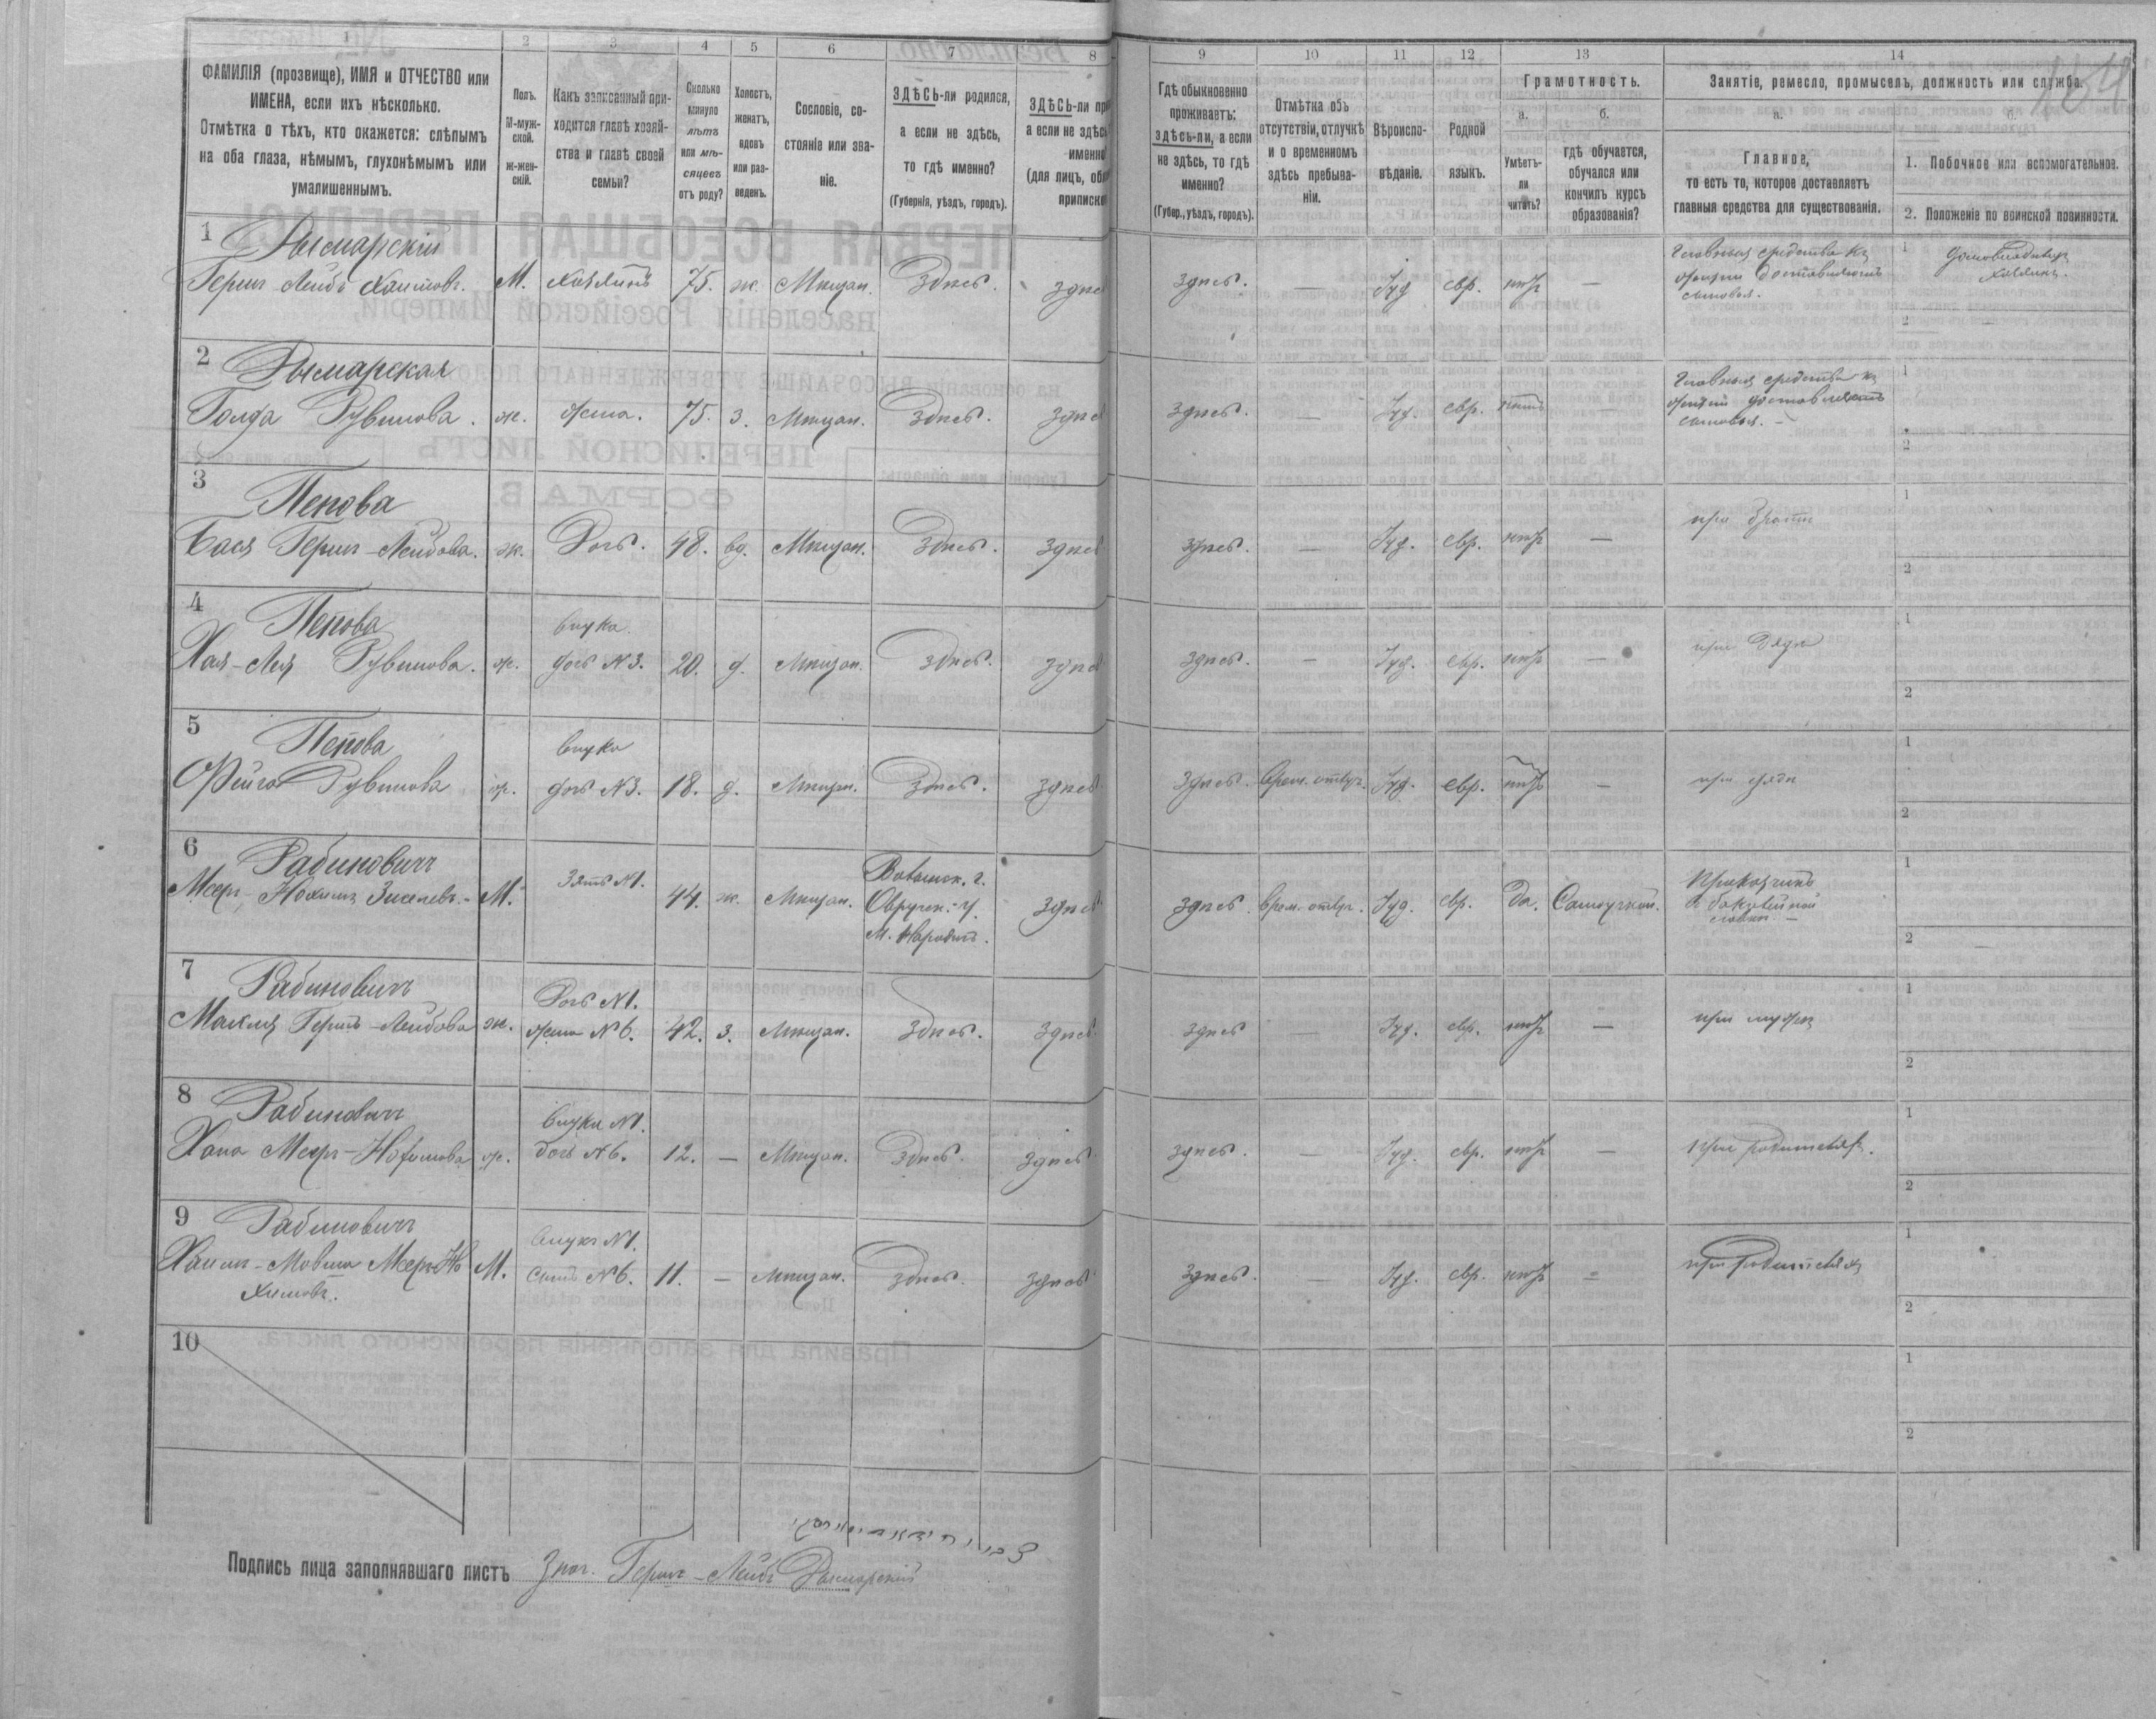 1 2 3 4 5 6 7 8 9 10 11 12 13 14
ФАМИЛІЯ (прозвище), ИМЯ и ОТЧЕСТВО или
ИМЕНА, если ихъ нѣсколько.
Отмѣтка о тѣхъ, кто окажется: слѣпымъ
на оба глаза, нѣмымъ, глухонѣмымъ или
умалишеннымъ.
Полъ.
М-муж-
ской.
ж-жен-
скій.
Какъ записанный при-
ходится главѣ хозяй-
ства и главѣ своей
семьи?
Сколько
минуло
лѣтъ
или мѣ-
сяцевъ
отъ роду?
Холостъ,
женатъ,
вдовъ
или раз-
веденъ.
Сословіе, со-
стояніе или зва-
ніе.
ЗДѢСЬ-ли родился,
а если не здѣсь,
то гдѣ именно?
(Губернія, уѣздъ, городъ).
ЗДѢСЬ-ли пр
а если не здѣс
именно
(для лицъ, об
приписко
Гдѣ обыкновенно
проживаетъ:
здѣсь-ли, а если
не здѣсь, то гдѣ
именно?
(Губер., уѣздъ, городъ).
Отмѣтка объ
отсутствіи, отлучкѣ
и о временномъ
здѣсь пребыва-
ніи.
Вѣроиспо-
вѣданіе.
Родной
языкъ.
Грамотность.
а.
Умѣетъ-
ли
читать?
б.
гдѣ обучается,
обучался или
кончилъ курсъ
образованія?
Занятіе, ремесло, промыселъ, должность или служба.
а.
Главное,
то есть то, которое доставляетъ
главныя средства для существованія.
б.
1. Побочное или вспомогательное.
2. Положеніе по воинской повинности.
1 Дымарскій
Герш Лейбъ Хаимовъ. М. хозяинъ 75. ж. Мѣщан. Здѣсь. здѣс здѣсь. — Іуд. евр. нѣтъ —
Главныя средства къ
жизни доставляютъ
сыновья.
1 домовладѣлецъ
хозяинъ.
2 —
2 Дымарская
Голда Рувинова. ж. жена. 75. з. Мѣщан. Здѣсь. здѣс здѣсь. — Іуд. евр. нѣтъ —
Главныя средства къ
жизни доставляютъ
сыновья. —
1
2
3 Пепова
Бася Герш-Лейбова. ж. Дочь. 48. вд. Мѣщан. Здѣсь. здѣсь здѣсь. — Іуд. евр. нѣтъ — при братѣ
1
2
4 Пепова
Хая-Лея Рувинова. ж. внука дочь №3. 20. д. Мѣщан. здѣсь. здѣсь здѣсь. — Іуд. евр. нѣтъ — при дядѣ
1
2
5 Пепова
Фейга Рувинова ж. внука дочь №3. 18. д. Мѣщан. Здѣсь. здѣсь здѣсь. Врем. отлуч. Іуд. евр. нѣтъ — при дядѣ
1
2
6 Рабиновичъ
Меер-Нохим Зиселевъ. М. Зять №1. 44. ж. Мѣщан.
Волынск. г.
Овручск. у.
м. Народич.
здѣсь здѣсь. Врем. отлуч. Іуд. евр. Да. Самоучкой.
Приказчикъ
в бакалейной
лавкѣ —
1
2 —
7 Рабиновичъ
Малкия Гершъ-Лейбова ж. Дочь №1. жена №6. 42. з. Мѣщан. Здѣсь. здѣсь здѣсь — Іуд. евр. нѣтъ — при мужѣ
1
2
8 Рабиновичъ
Хана Меер-Нохимова ж. Внука №1. дочь №6. 12. — Мѣщан. Здѣсь. здѣсь здѣсь. — Іуд. евр. нѣтъ — при родителях.
1
2
9 Рабиновичъ
Хаим-Мовша Меер-Но
химовъ. М. Внукъ №1. сынъ №6. 11. — Мѣщан. здѣсь. здѣсь здѣсь. — Іуд. евр. нѣтъ — при родителях
1
2
10
1
2
Подпись лица заполнявшаго листъ Герш-Лейбъ Дымарскій